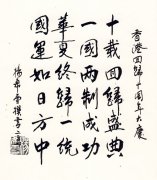 香港回歸十周年大慶
十載回歸盛典
一國兩制成功
華夏終歸一統
國運如日方中
楊希雲撰書